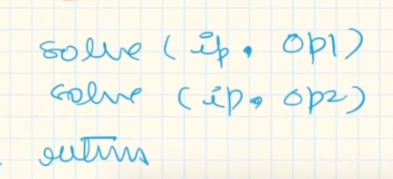 solve ( ip, op1)
solve (ip, op2)
return